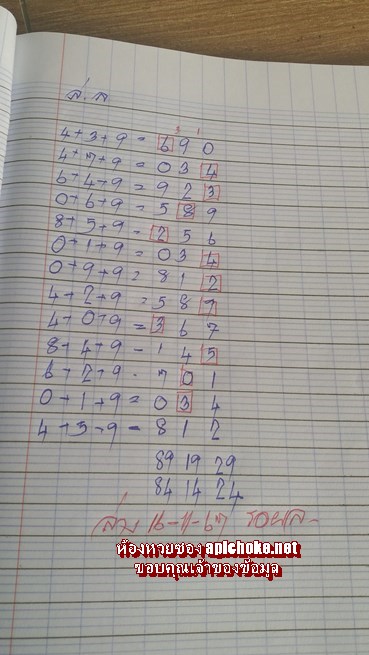 ล่.ส
3 1
4+3+9 = 6 9 0
4+7+9 = 0 3 4
6+4+9 = 9 2 3
0+6+9 = 5 8 9
8+5+9 = 2 5 6
0+1+9 = 0 3 4
0+9+9 = 8 1 2
4+2+9 = 5 8 7
4+0+9 = 3 6 7
8+4+9 - 1 4 5
6+2+9 - 7 0 1
0+1+9 = 0 3 4
4+5+9 = 8 1 2
89 19 29
84 14 24
ล่าง 16-11-67 รอผล-
ห้องหวยซอง apichoke.net
ขอบคุณเจ้าของข้อมูล